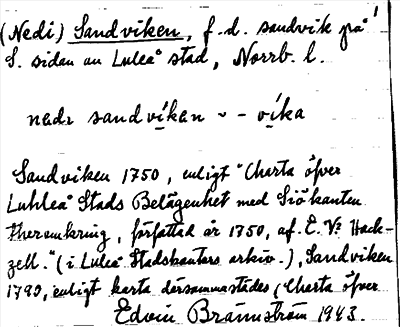 (Nedi) Sandviken, f.d. sandvik på
S. sidan av Luleå stad, Norrb. l.
nedı sandvikan ~ - vika
Sandviken 1750, enligt "Charta öfver
Luhleå Stads Belägenhet med Siökanten
theromkring, författad år 1750, af. E. Vr Hack-
zell." (i Luleå Stadskontors arkiv.), Sandviken
1790, enligt karta därsammastädes (Charta öfver
Edvin Brännström 1943.